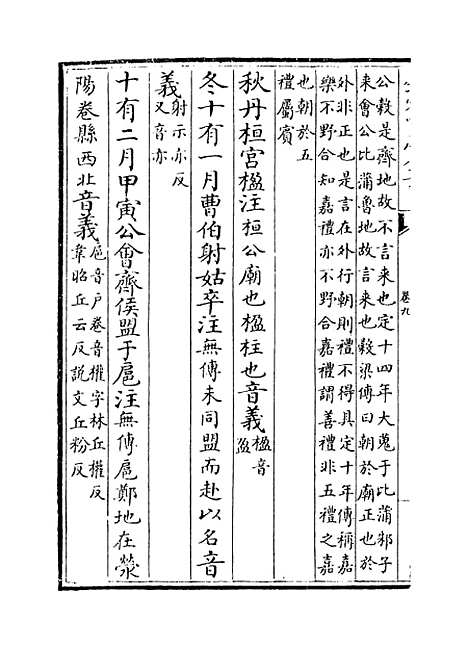 公穀是齊地故不言來也定十四年大蒐于比蒲邾子
來會公比蒲魯地故言來也穀梁傳曰朝於廟正也於
外非正也是言在外行朝則禮不得具定十年傳稱嘉
樂不野合知嘉禮亦不野合嘉禮謂善禮非五禮之嘉
也朝於五
禮屬賓
秋丹桓宫楹注桓公廟也楹柱也音義楹音
盈
冬十有一月曹伯射姑卒注無傳未同盟而赴以名音
義射示亦反
又音亦
十有二月甲寅公會齊侯盟于扈注無傳扈鄭地在滎
陽卷縣西北音義扈音户卷音權字林丘權反
韋昭丘云反說文丘粉反
卷九